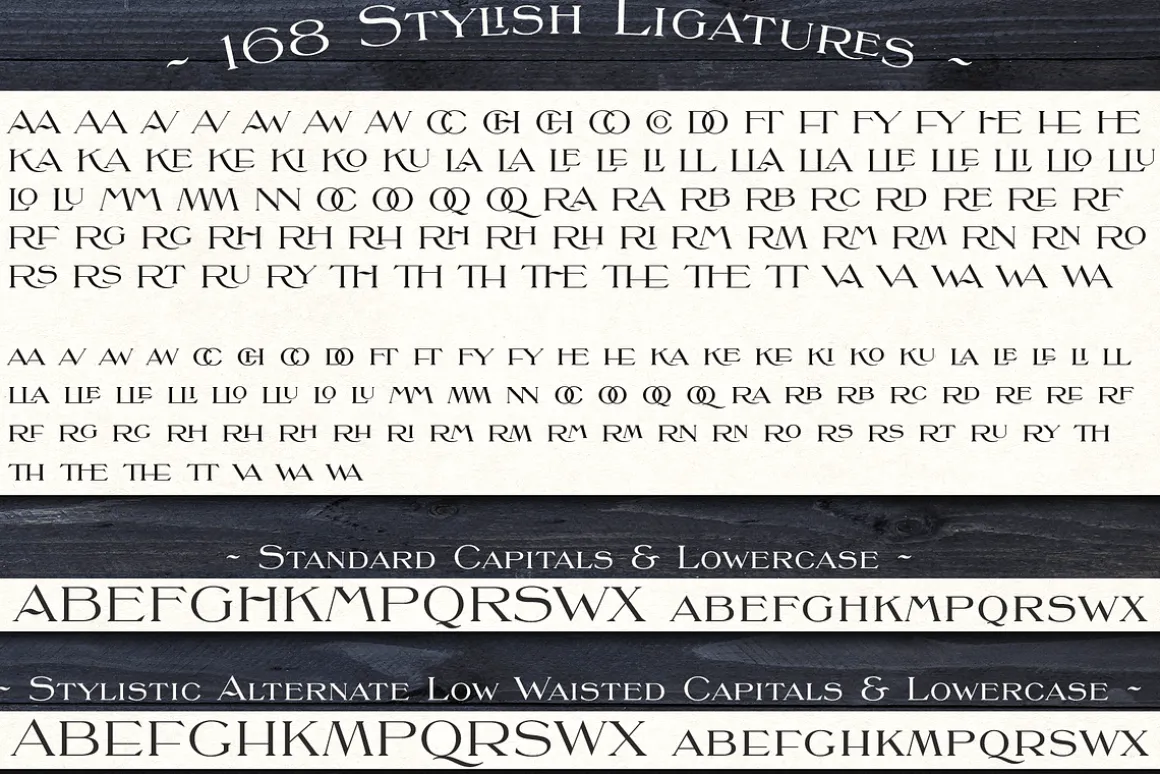 ~ 168 Stylish Ligatures ~
AA AA AV AV AW AW AW CC CH CH CO CO DO FT FT FY FY HE HE HE
KA KA KE KE KI KO KU LA LA LE LE LI LL LLA LLA LLE LLE LLI LLO LLU
LO LU MM MM NN OC OO OQ OQ RA RA RB RB RC RD RE RE RF
RF RG RG RH RH RH RH RH RH RI RM RM RM RM RN RN RO
RS RS RT RU RY TH TH TH THE THE THE TT VA VA WA WA WA
AA AV AW AW CC CH CO DO FT FT FY FY HE HE KA KE KE KI KO KU LA LE LE LI LL
LLA LLE LLE LLI LLO LLU LO LU MM MM NN OC OO OQ OQ RA RB RB RC RD RE RE RF
RF RG RG RH RH RH RH RI RM RM RM RM RN RN RO RS RS RT RU RY TH
TH THE THE TT VA WA WA
~ Standard Capitals & Lowercase ~
ABEFGHKMPQRSWX ABEFGHKMPQRSWX
~ Stylistic Alternate Low Waisted Capitals & Lowercase ~
ABEFGHKMPQRSWX ABEFGHKMPQRSWX